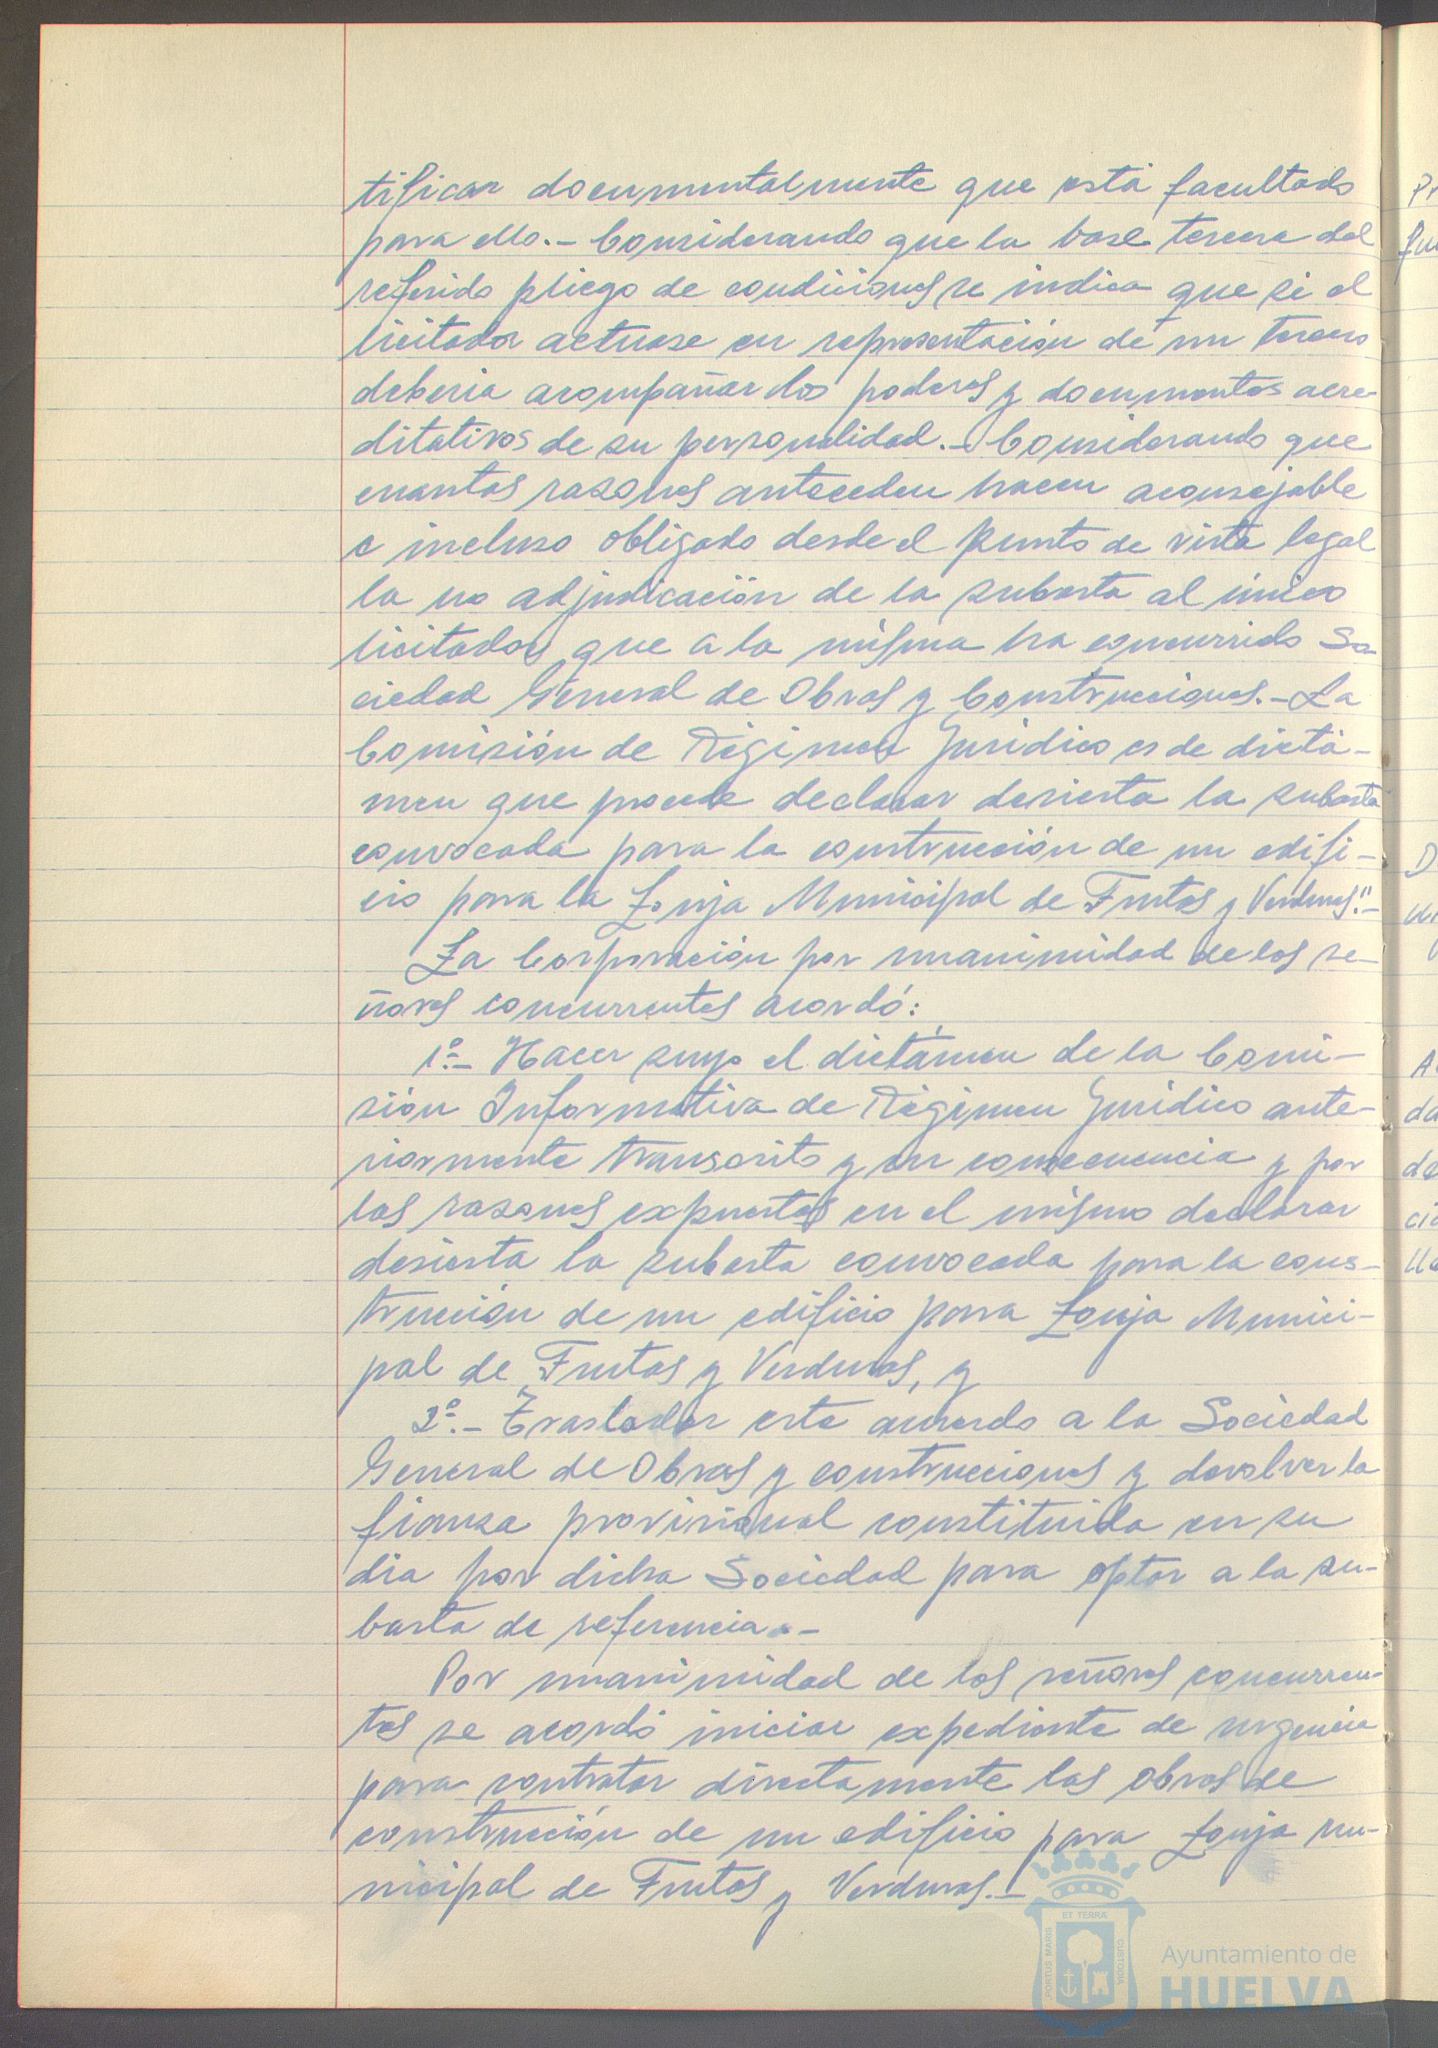 tificar documentalmente que está facultado
para ello.- Considerando que la base tercera del
referido pliego de condiciones se indica que si el
licitador actuase en representación de un tercero
deberia acompañar los poderes y documentos acre-
ditativos de su personalidad.- Considerando que
cuantas razones anteceden hacen aconsejable
e incluso obligado desde el punto de vista legal
la no adjudicación de la subasta al único
licitador que a la misma ha concurrido So-
ciedad General de Obras y Construcciones.- La
Comisión de Régimen Jurídico es de dictá-
men que procede declarar desierta la subasta
convocada para la construcción de un edifi-
cio para la Lonja Municipal de Frutas y Verduras".-
La Corporación por unanimidad de los se-
ñores concurrentes acordó:
1º.- Hacer suyo el dictámen de la Comi-
sión Informativa de Régimen Jurídico ante-
riormente transcrito y en consecuencia y por
las razones expuestas en el mismo declarar
desierta la subasta convocada para la cons-
trucción de un edificio para Lonja Munici-
pal de Frutas y Verduras, y
2º.- Trasladar este acuerdo a la Sociedad
General de Obras y construcciones y devolver la
fianza provisional constituida en su
dia por dicha Sociedad para optar a la su-
basta de referencia.-
Por unanimidad de los señores concurren-
tes se acordó iniciar expediente de urgencia
para contratar directamente las obras de
construcción de un edificio para Lonja mu-
nicipal de Frutas y Verduras.-
PORTUS MARIS
ET TERRA
CUSTODIA
Ayuntamiento de
HUELVA